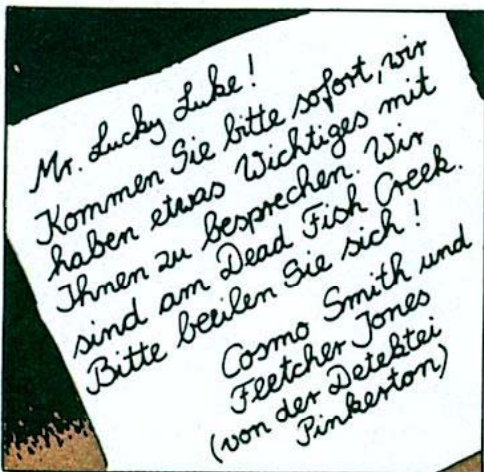 Mr. Lucky Luke!
Kommen Sie bitte sofort, wir
haben etwas Wichtiges mit
Ihnen zu besprechen. Wir
sind am Dead Fish Creek.
Bitte beeilen Sie sich!
Cosmo Smith und
Fletcher Jones
(von der Detektei
Pinkerton)